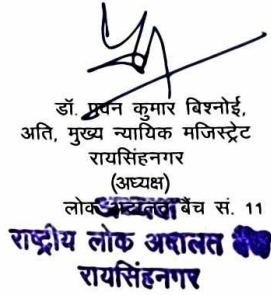 डॉ. पवन कुमार बिश्नोई,
अति, मुख्य न्यायिक मजिस्ट्रेट
रायसिंहनगर
(अध्यक्ष)
लोक अदालत बैंच सं. 11
अध्यक्ष
राष्ट्रीय लोक अदालत बैंच
रायसिंहनगर